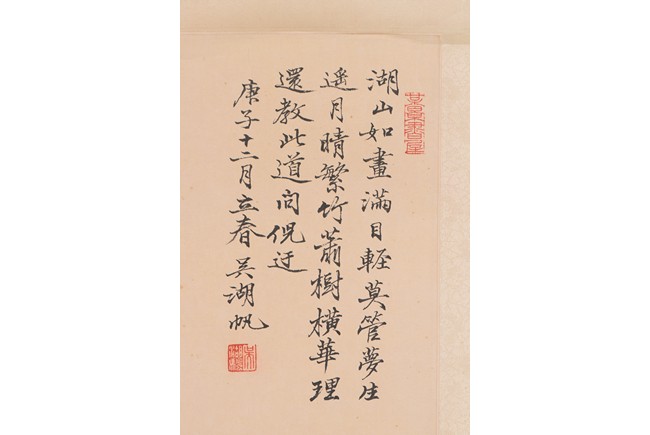 某景書屋
湖山如畫滿目輕莫管夢生
遥月晴繁竹蕭樹橫華理
還教此道問倪迂
庚子十二月立春 吳湖帆